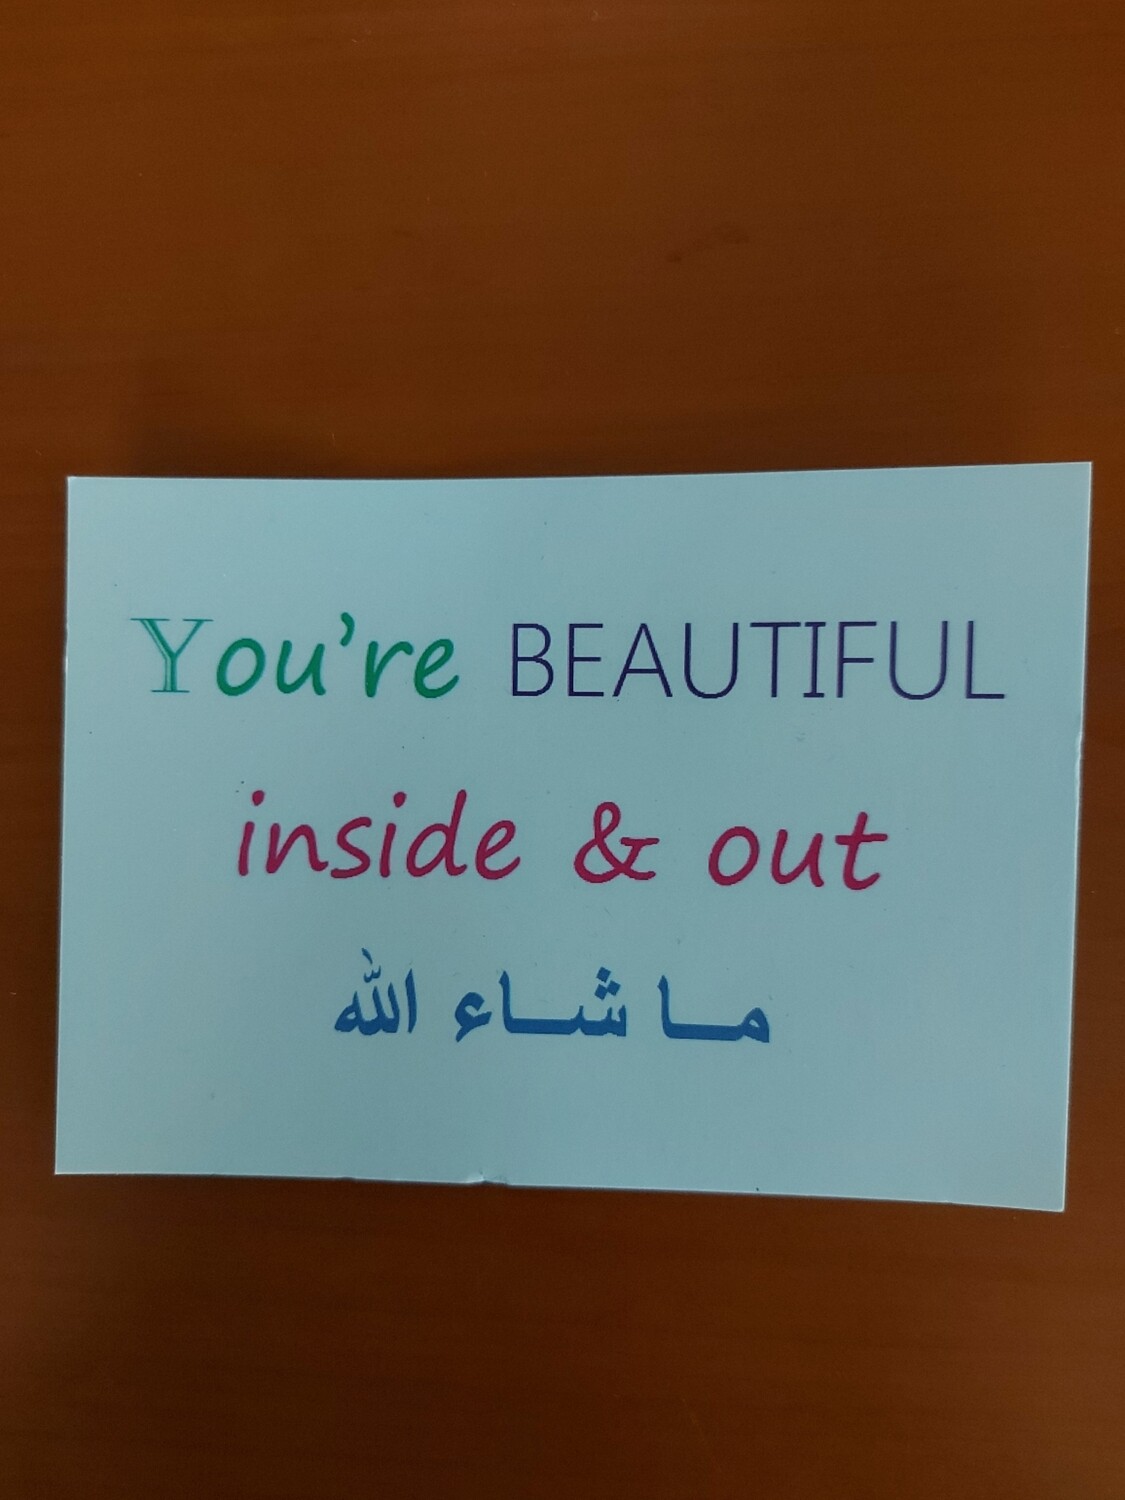 You're BEAUTIFUL
inside & out
ما شاء الله